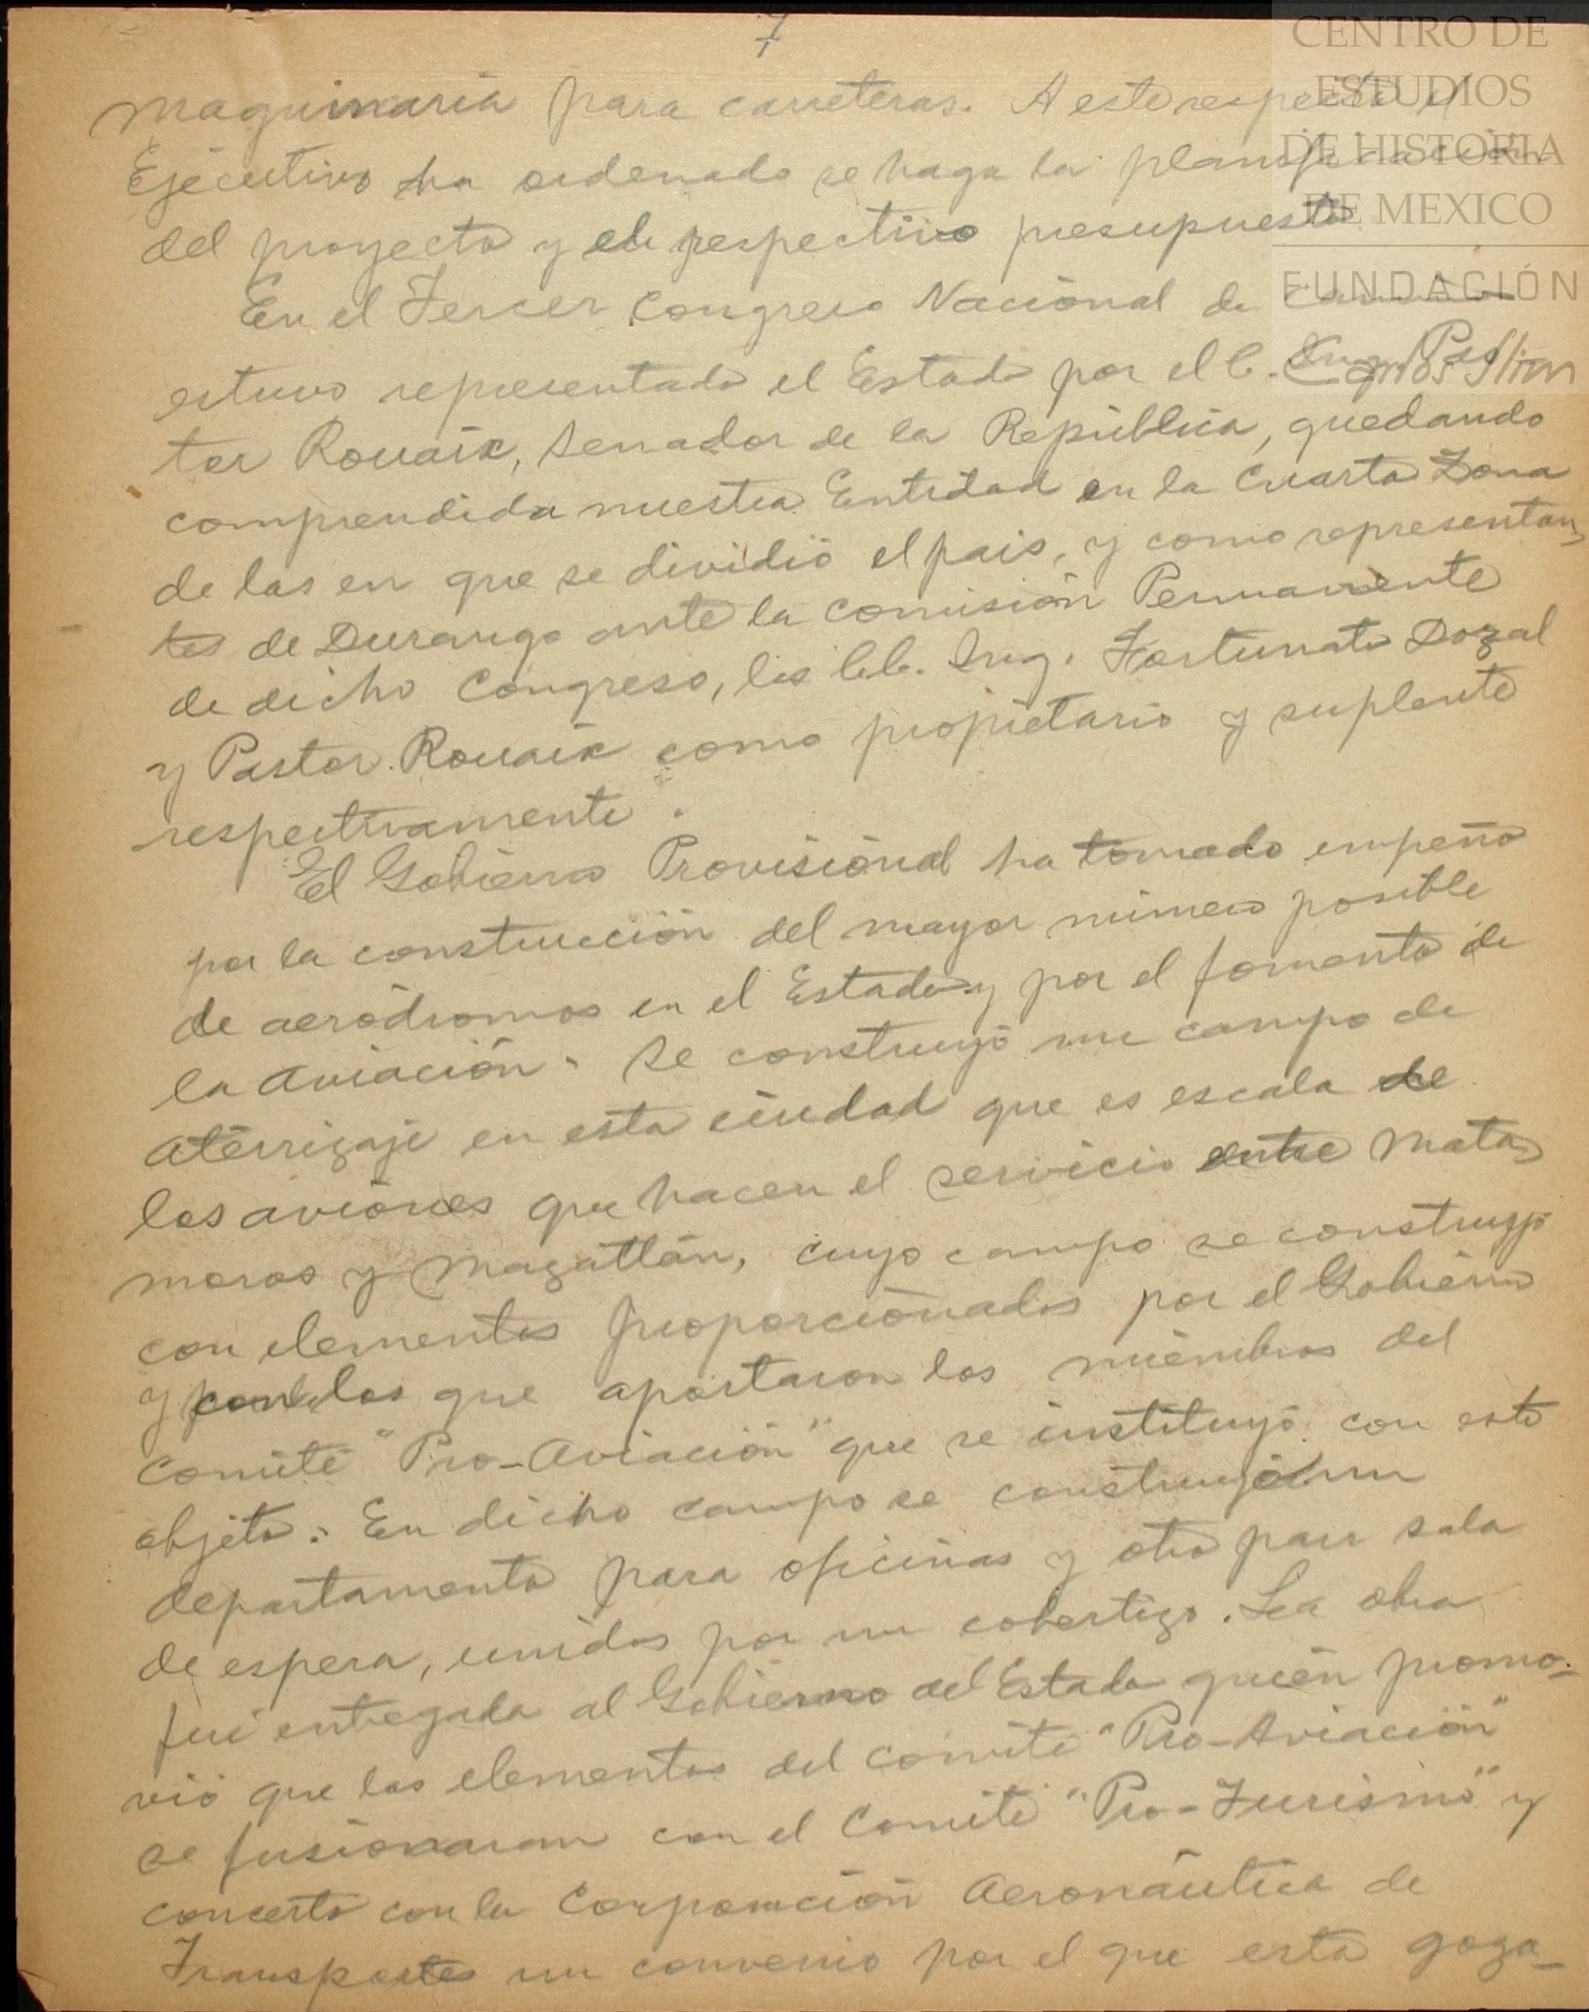 7
CENTRO DE
ESTUDIOS
DE HISTORIA
DE MEXICO
FUNDACIÓN
Carlos Slim
maquinaria para carreteras. A este respecto el
Ejecutivo ha ordenado se haga la planificación
del proyecto y el respectivo presupuesto
En el Tercer Congreso Nacional de Caminos
estuvo representado el Estado por el C. Ing. Pas
tor Rouaix, Senador de la República, quedando
comprendida nuestra Entidad en la Cuarta Zona
de las en que se dividió el pais, y como representan
tes de Durango ante la Comisión Permanente
de dicho Congreso, los C.C. Ing. Fortunato Dozal
y Pastor Rouaix como propietario y suplente
respectivamente.
El Gobierno Provisional ha tomado empeño
por la construcción del mayor número posible
de aeródromos en el Estado y por el fomento de
la aviación. Se construyó un campo de
aterrizaje en esta ciudad que es escala de
los aviones que hacen el servicio entre Mata
moros y Mazatlán, cuyo campo se construyó
con elementos proporcionados por el Gobierno
y con los que aportaron los miembros del
Comité "Pro-Aviación" que se instituyó con este
objeto. En dicho campo se construyó un
departamento para oficinas y otro para sala
de espera, unidos por un cobertizo. La obra
fué entregada al Gobierno del Estado quien promo-
vió que los elementos del Comité "Pro-Aviación"
se fusionaran con el Comité "Pro-Turismo" y
concertó con la Corporación Aeronáutica de
Transportes un convenio por el que esta goza-